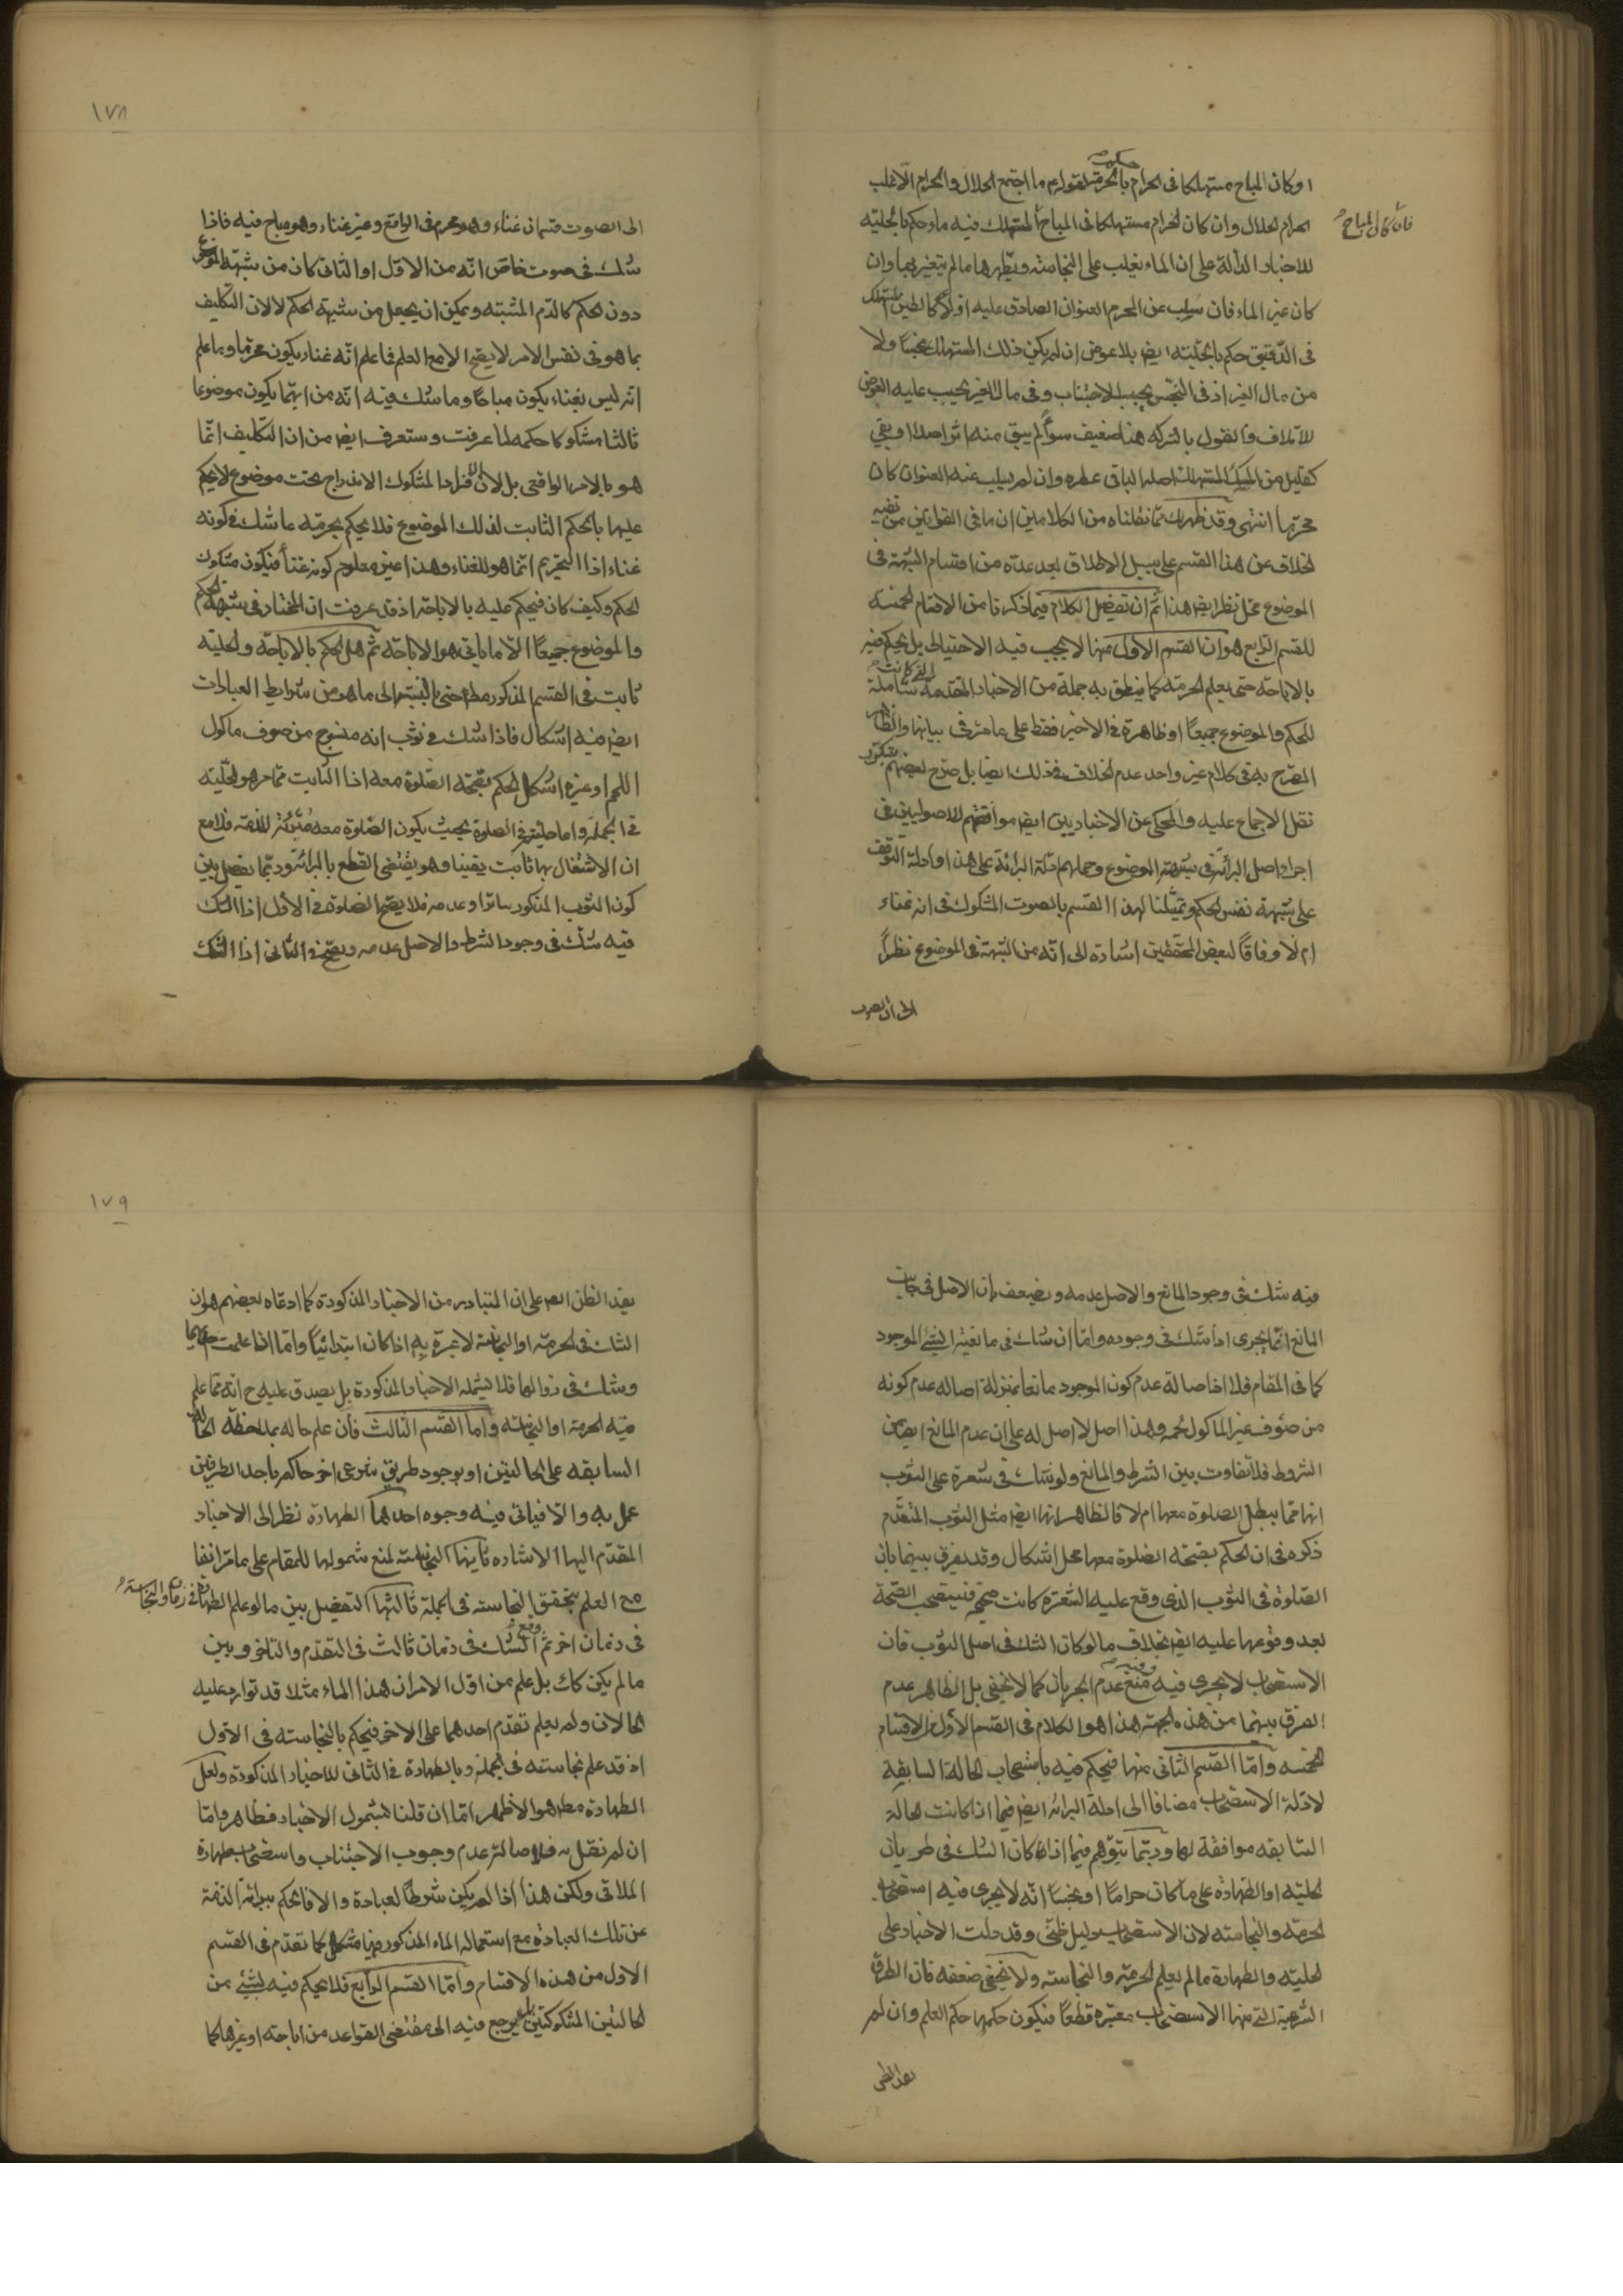 او كان المباح مستهلكا في الحرام حكم بالحرمة لقولهم ما اجتمع الحلال والحرام الا غلب
الحرام الحلال وان كان الحرام مستهلكا في المباح المستهلك فيه ماء حكم بالحلية
فان كان المباح
للاخبار الدالة على ان الماء يغلب على النجاسة ويطهرها ما لم يتغير بها وان
كان غير الماء فان سلب عن المحرم العنوان الصادق عليه اولا كالطين المستهلك
في الدقيق حكم بالحلية ايضا بلا عوض ان لم يكن ذلك المستهلك نجسا ولا
من مال الغير اذ في النجس يجب الاجتناب وفي مال الغير يجب عليه العوض
للاتلاف والقول بالشركة هنا ضعيف سواء لم يبق منه اثر اصلا او بقي
كقليل من المسك المستهلك اصله الباقي عطره وان لم يسلب عنه العنوان كان
محرما انتهى وقد ظهر لك مما نقلناه من الكلامين ان ما في القوانين من نفيه
الخلاف عن هذا القسم على سبيل الاطلاق بعد عده من اقسام الشبهة في
الموضوع محل نظر ايضا هذا ثم ان تفصيل الكلام فيما ذكرنا من الاقسام الخمسة
للقسم الرابع هو ان القسم الاول منها لا يجب فيه الاحتياط بل يحكم فيه
بالاباحة حتى يعلم الحرمة كما ينطق به جملة من الاخبار المتقدمة التي كانت شاملة
للحكم والموضوع جميعا او ظاهرة في الاخير فقط على ما مر في بيانها والظاهر
المصرح به في كلام غير واحد عدم الخلاف في ذلك ايضا بل صرح بعضهم بتكرر
نقل الاجماع عليه والمحكي عن الاخباريين ايضا موافقتهم للاصوليين في
اجراء اصل البرائة في شبهة الموضوع وحملهم ادلة البرائة على هذا وادلة التوقف
على شبهة نفس الحكم وتمثيلنا لهذا القسم بالصوت المشكوك في انه غناء
ام لا وفاقا لبعض المحققين اشارة الى انه من الشبهة في الموضوع نظرا
الى ان الصوت
١٧٨
الى الصوت قسمان غناء وهو محرم في الواقع وغير غناء وهو مباح فيه فاذا
شك في صوت خاص انه من الاول او الثاني كان من شبهة الموضوع
دون الحكم كالدم المشتبه ويمكن ان يجعل من شبهة الحكم لا لان التكليف
بما هو في نفس الامر لا يصح الا مع العلم فما علم انه غناء يكون محرما وما علم
انه ليس بغناء يكون مباحا وما شك فيه انه من ايهما يكون موضوعا
ثالثا مشكوكا حكمه لما عرفت وستعرف ايضا من ان التكليف انما
هو بالامر الواقعي بل لان الافراد المشكوك الاندراج تحت موضوع لا يحكم
عليها بالحكم الثابت لذلك الموضوع فلا يحكم بحرمة ما شك في كونه
غناء اذا التحريم انما هو للغناء وهذا غير معلوم كونه غناء فيكون مشكوك
الحكم وكيف كان فيحكم عليه بالاباحة اذ قد عرفت ان المختار في شبهة الحكم
والموضوع جميعا الا ما ياتي هو الاباحة ثم هل الحكم بالاباحة والحلية
ثابت في القسم المذكور مطلقا حتى بالنسبة الى ما هو من شرايط العبادات
ايضا فيه اشكال فاذا شك في ثوب انه منسوج من صوف ماكول
اللحم او غيره اشكل الحكم بصحة الصلوة معه اذا الثابت مما مر هو الحلية
في الجملة واما حليته في الصلوة بحيث يكون الصلوة معه مبرئة للذمة فلا مع
ان الاشتغال بها ثابت يقينا وهو يقتضي القطع بالبرائة وربما يفصل بين
كون الثوب المذكور ساترا وعدمه فلا يصح الصلوة في الاول اذ الشك
فيه شك في وجود الشرط والاصل عدمه ويصح في الثاني اذ الشك
فيه شك في وجود المانع والاصل عدمه ويضعف بان الاصل في جانب
المانع انما يجري اذا شك في وجوده واما ان شك في مانعية الشيء الموجود
كما في المقام فلا اذ اصالة عدم كون الموجود مانعا بمنزلة اصالة عدم كونه
من صوف غير الماكول لحمه وهذا اصل لا اصل له على ان عدم المانع ايضا من
الشروط فلا تفاوت بين الشرط والمانع ولو شك في شعرة على الثوب
انها مما يبطل الصلوة معها ام لا فالظاهر انها ايضا مثل الثوب المتقدم
ذكره في ان الحكم بصحة الصلوة معها محل اشكال وقد يفرق بينهما بان
الصلوة في الثوب الذي وقع عليه الشعرة كانت صحيحة فيستصحب الصحة
بعد وقوعها عليه ايضا بخلاف ما لو كان الشك في اصل الثوب فان
الاستصحاب لا يجري فيه وفيه منع عدم الجريان كما لا يخفى بل الظاهر عدم
الفرق بينهما من هذه الجهة هذا هو الكلام في القسم الاول من الاقسام
الخمسة واما القسم الثاني منها فيحكم فيه باستصحاب الحالة السابقة
لادلة الاستصحاب مضافا الى ادلة البرائة ايضا فيما اذا كانت الحالة
السابقة موافقة لها وربما يتوهم فيما اذا كان الشك في طريان
الحلية او الطهارة على ما كان حراما او نجسا انه لا يجري فيه استصحاب
الحرمة والنجاسة لان الاستصحاب دليل ظني وقد دلت الاخبار على
الحلية والطهارة ما لم يعلم الحرمة والنجاسة ولا يخفى ضعفه فان الطرق
الشرعية التي منها الاستصحاب معتبرة قطعا فيكون حكمها حكم العلم وان لم
يفد الظن
١٧٩
يفد الظن ايضا على ان المتبادر من الاخبار المذكورة كما ادعاه بعضهم هو ان
الشك في الحرمة او النجاسة لا عبرة به اذا كان ابتدائيا واما اذا علمت
وشك في زوالهما فلا يشمله الاخبار المذكورة بل يصدق عليه ح انه مما علم
فيه الحرمة او النجاسة واما القسم الثالث فان علم حاله بملاحظة الحالة
السابقة على الحالتين او بوجود طريق شرعي اخر حاكم باحد الطرفين
عمل به والا فياتي فيه وجوه احدها الطهارة نظرا الى الاخبار
المقدم اليها الاشارة ثانيها النجاسة لمنع شمولها للمقام على ما مر انفا
مع العلم بتحقق النجاسة في الجملة ثالثها التفصيل بين ما لو علم الطهارة في زمان والنجاسة
في زمان اخر ثم وقع الشك في زمان ثالث في التقدم والتاخر وبين
ما لم يكن كك بل علم من اول الامر ان هذا الماء مثلا قد توارد عليه
الحالان ولم يعلم تقدم احدهما على الاخر فيحكم بالنجاسة في الاول
اذ قد علم نجاسته في الجملة وبالطهارة في الثاني للاخبار المذكورة ولعل
الطهارة مطلقا هو الاظهر اما ان قلنا بشمول الاخبار فظاهر واما
ان لم نقل به فلاصالة عدم وجوب الاجتناب واستصحاب طهارة
الملاقي ولكن هذا اذا لم يكن شرطا لعبادة والا فالحكم ببرائة الذمة
عن تلك العبادة مع استعمال الماء المذكور فيها مشكل كما تقدم في القسم
الاول من هذه الاقسام واما القسم الرابع فلا يحكم فيه بشيء من
الحالتين المشكوكتين بل يرجع فيه الى مقتضى القواعد من اباحة او غيرها كما